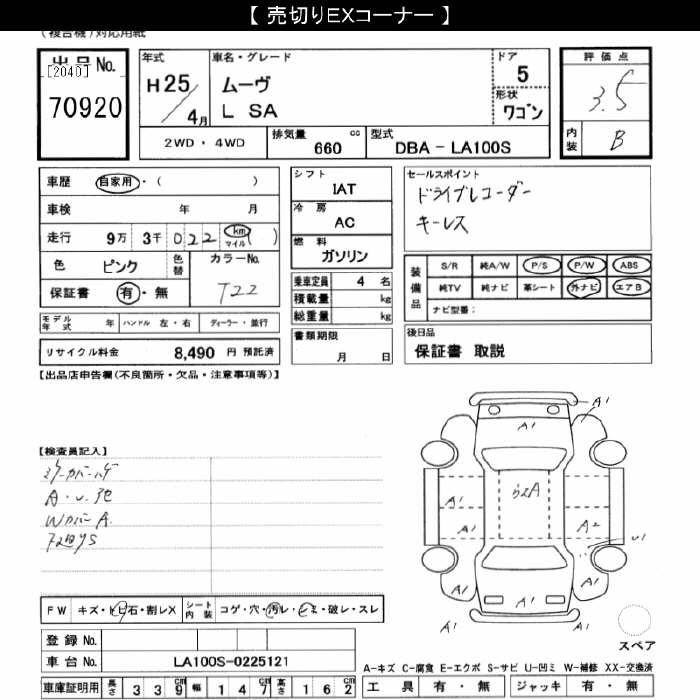 【 売切りEXコーナー 】
(複合機)対応用紙
出品No.
[2040]
70920
年式
H 25/4月
車名・グレード
ムーヴ
L SA
ドア
5
形状
ワゴン
評価点
3.5
内装
B
2WD・4WD
排気量
660 cc
型式
DBA - LA100S
車歴 自家用・( )
車検 年 月
走行 9万 3千 022 km マイル ( )
色 ピンク 色替 カラーNo.
保証書 有・無 T22
シフト
IAT
冷房
AC
燃料
ガソリン
乗車定員 4 名
積載量 kg
総重量 kg
セールスポイント
ドライブレコーダー
キーレス
装備品
S/R 純A/W P/S P/W ABS
純TV 純ナビ 革シート 外ナビ エアB
ナビ型番:
モデル年式 年 ハンドル 左・右 ディーラー・並行
書類期限
月 日
後日品
保証書 取説
リサイクル料金 8,490 円 預託済
【出品店申告欄(不良箇所・欠品・注意事項等)】
【検査員記入】
ミラーカバーハゲ
A・U他
WカバーA
A1
A1
A1
A1
A1
A2
U1
A1
A1
A1
FW キズ・トビ石・割レX シート内装 コゲ・穴・汚レ・シミ・破レ・スレ
スペア
登録 No.
車台 No. LA100S-0225121
A-キズ C-腐食 E-エクボ S-サビ U-凹ミ W-補修 XX-交換済
車庫証明用 長さ 339cm 幅 147cm 高さ 162cm
工具 有・無 ジャッキ 有・無